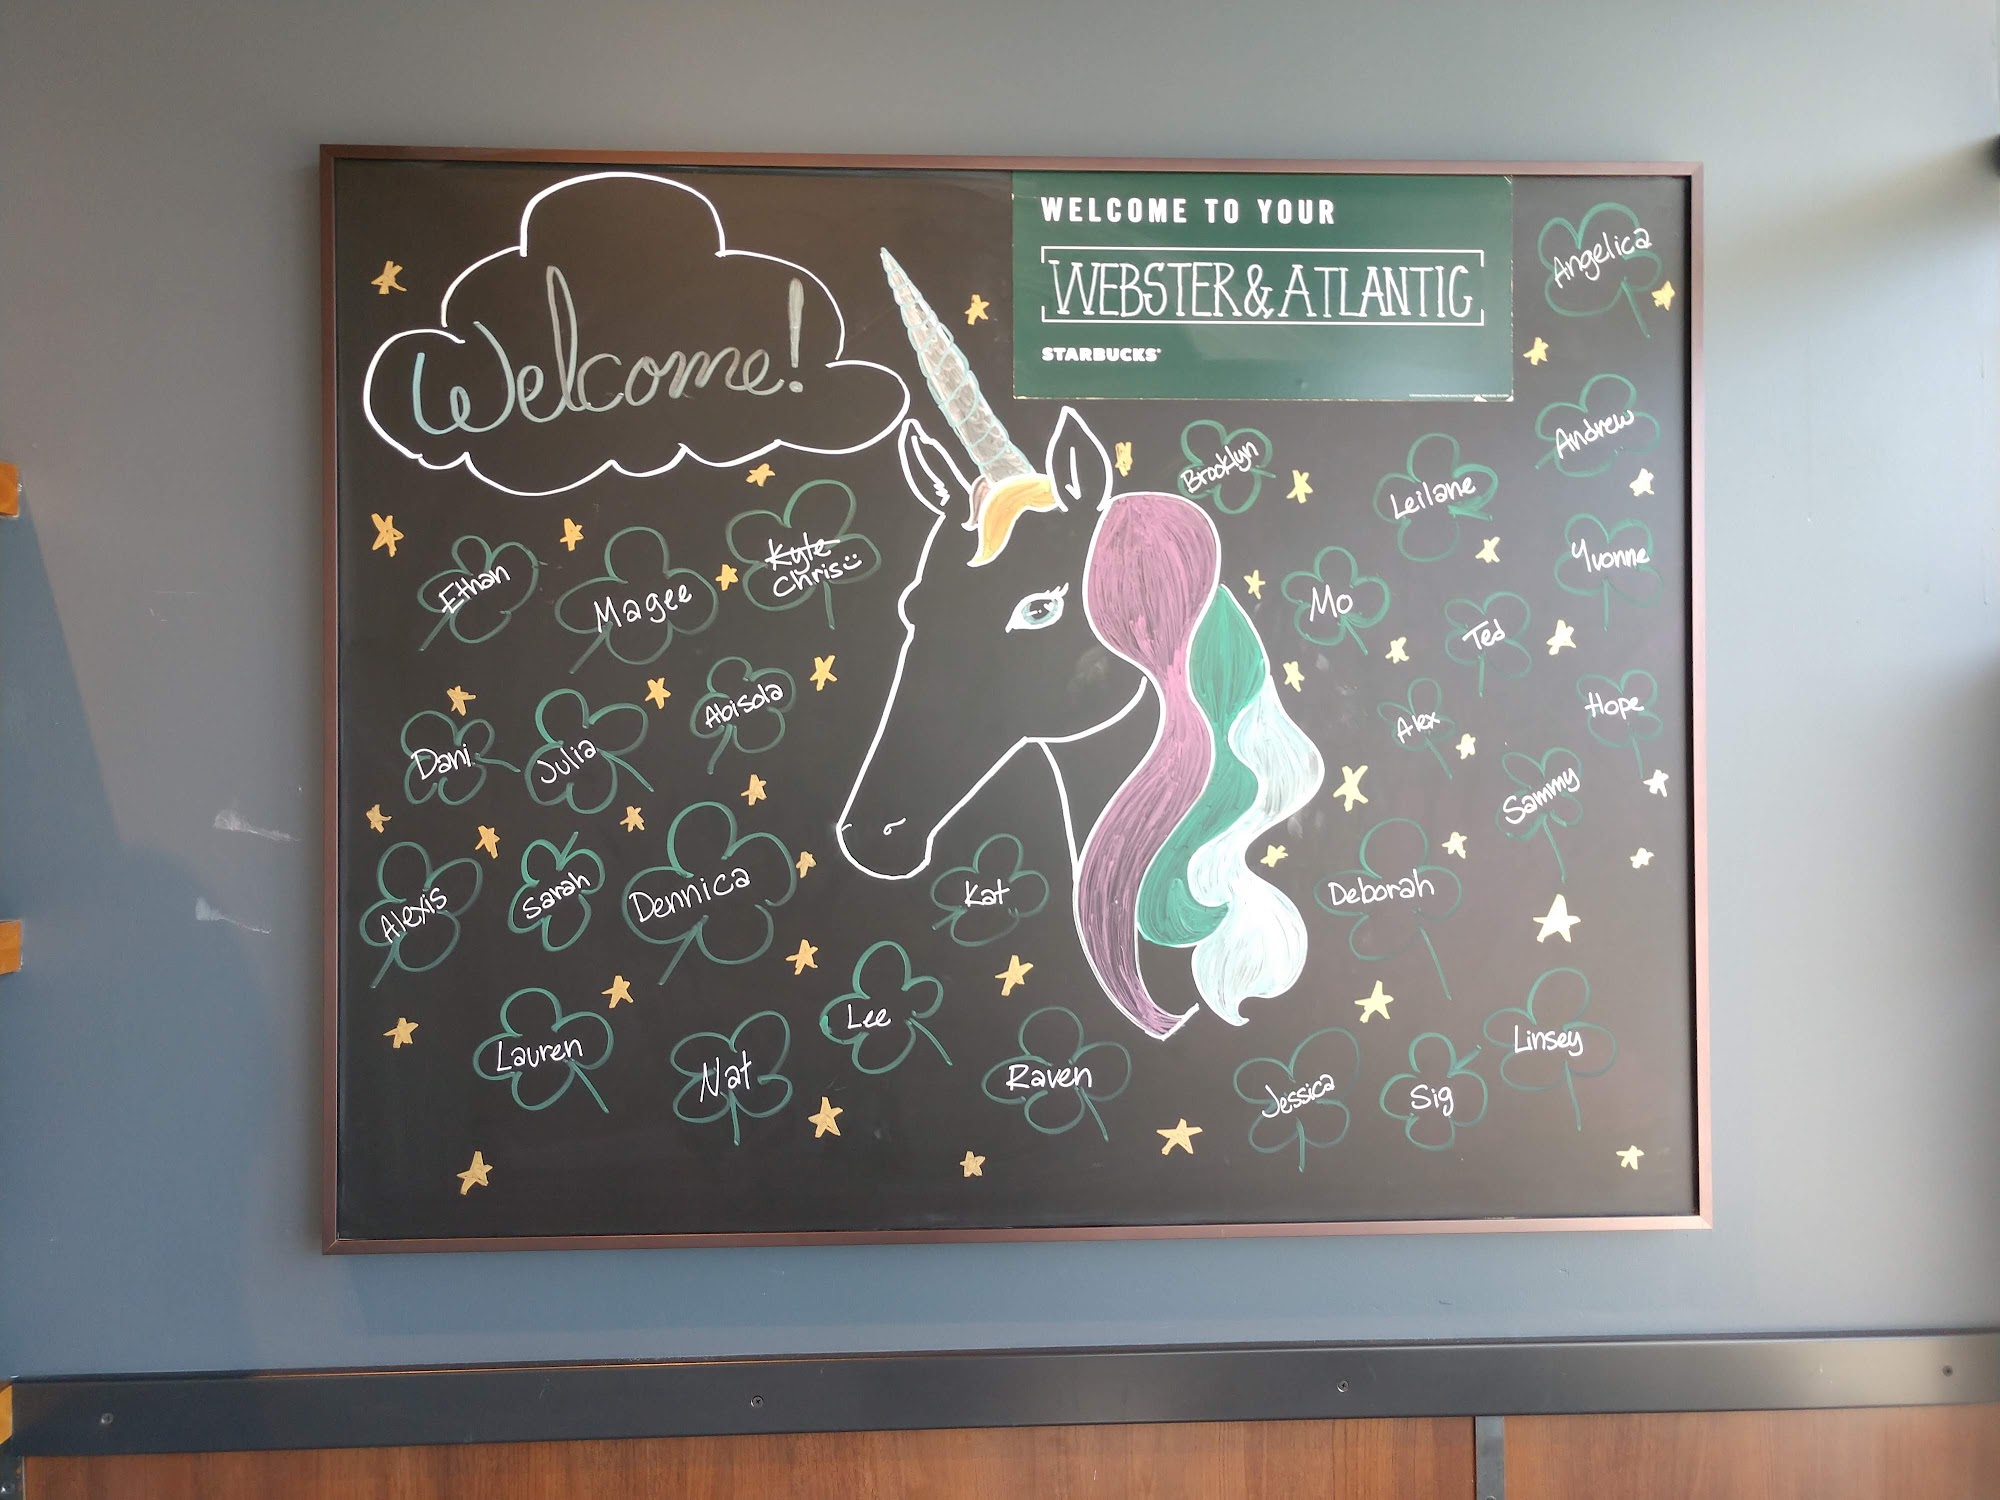 Welcome!
WELCOME TO YOUR
WEBSTER & ATLANTIC
STARBUCKS
Angelica
Andrew
Brooklyn
Leilane
Yvonne
Kyle
Chris
Ethan
Magee
Mo
Ted
Abisola
Hope
Alex
Dani
Julia
Sammy
Alexis
Sarah
Dennica
Kat
Deborah
Lee
Lauren
Nat
Raven
Jessica
Sig
Linsey